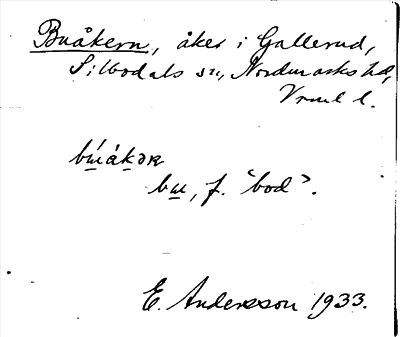 Buåkern, åker i Gallerud,
Silbodals sn, Nordmarks hd,
Vrml l.
bú̱åkər
bu̱, f. "bod".
E. Andersson 1933.